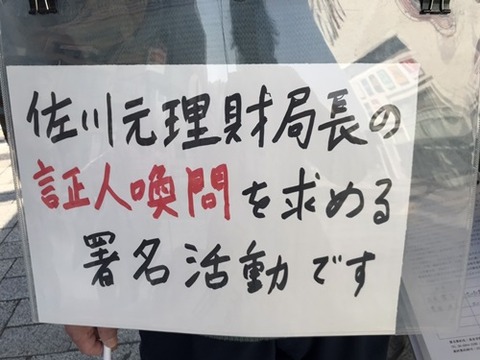 佐川元理財局長の
証人喚問を求める
署名活動です